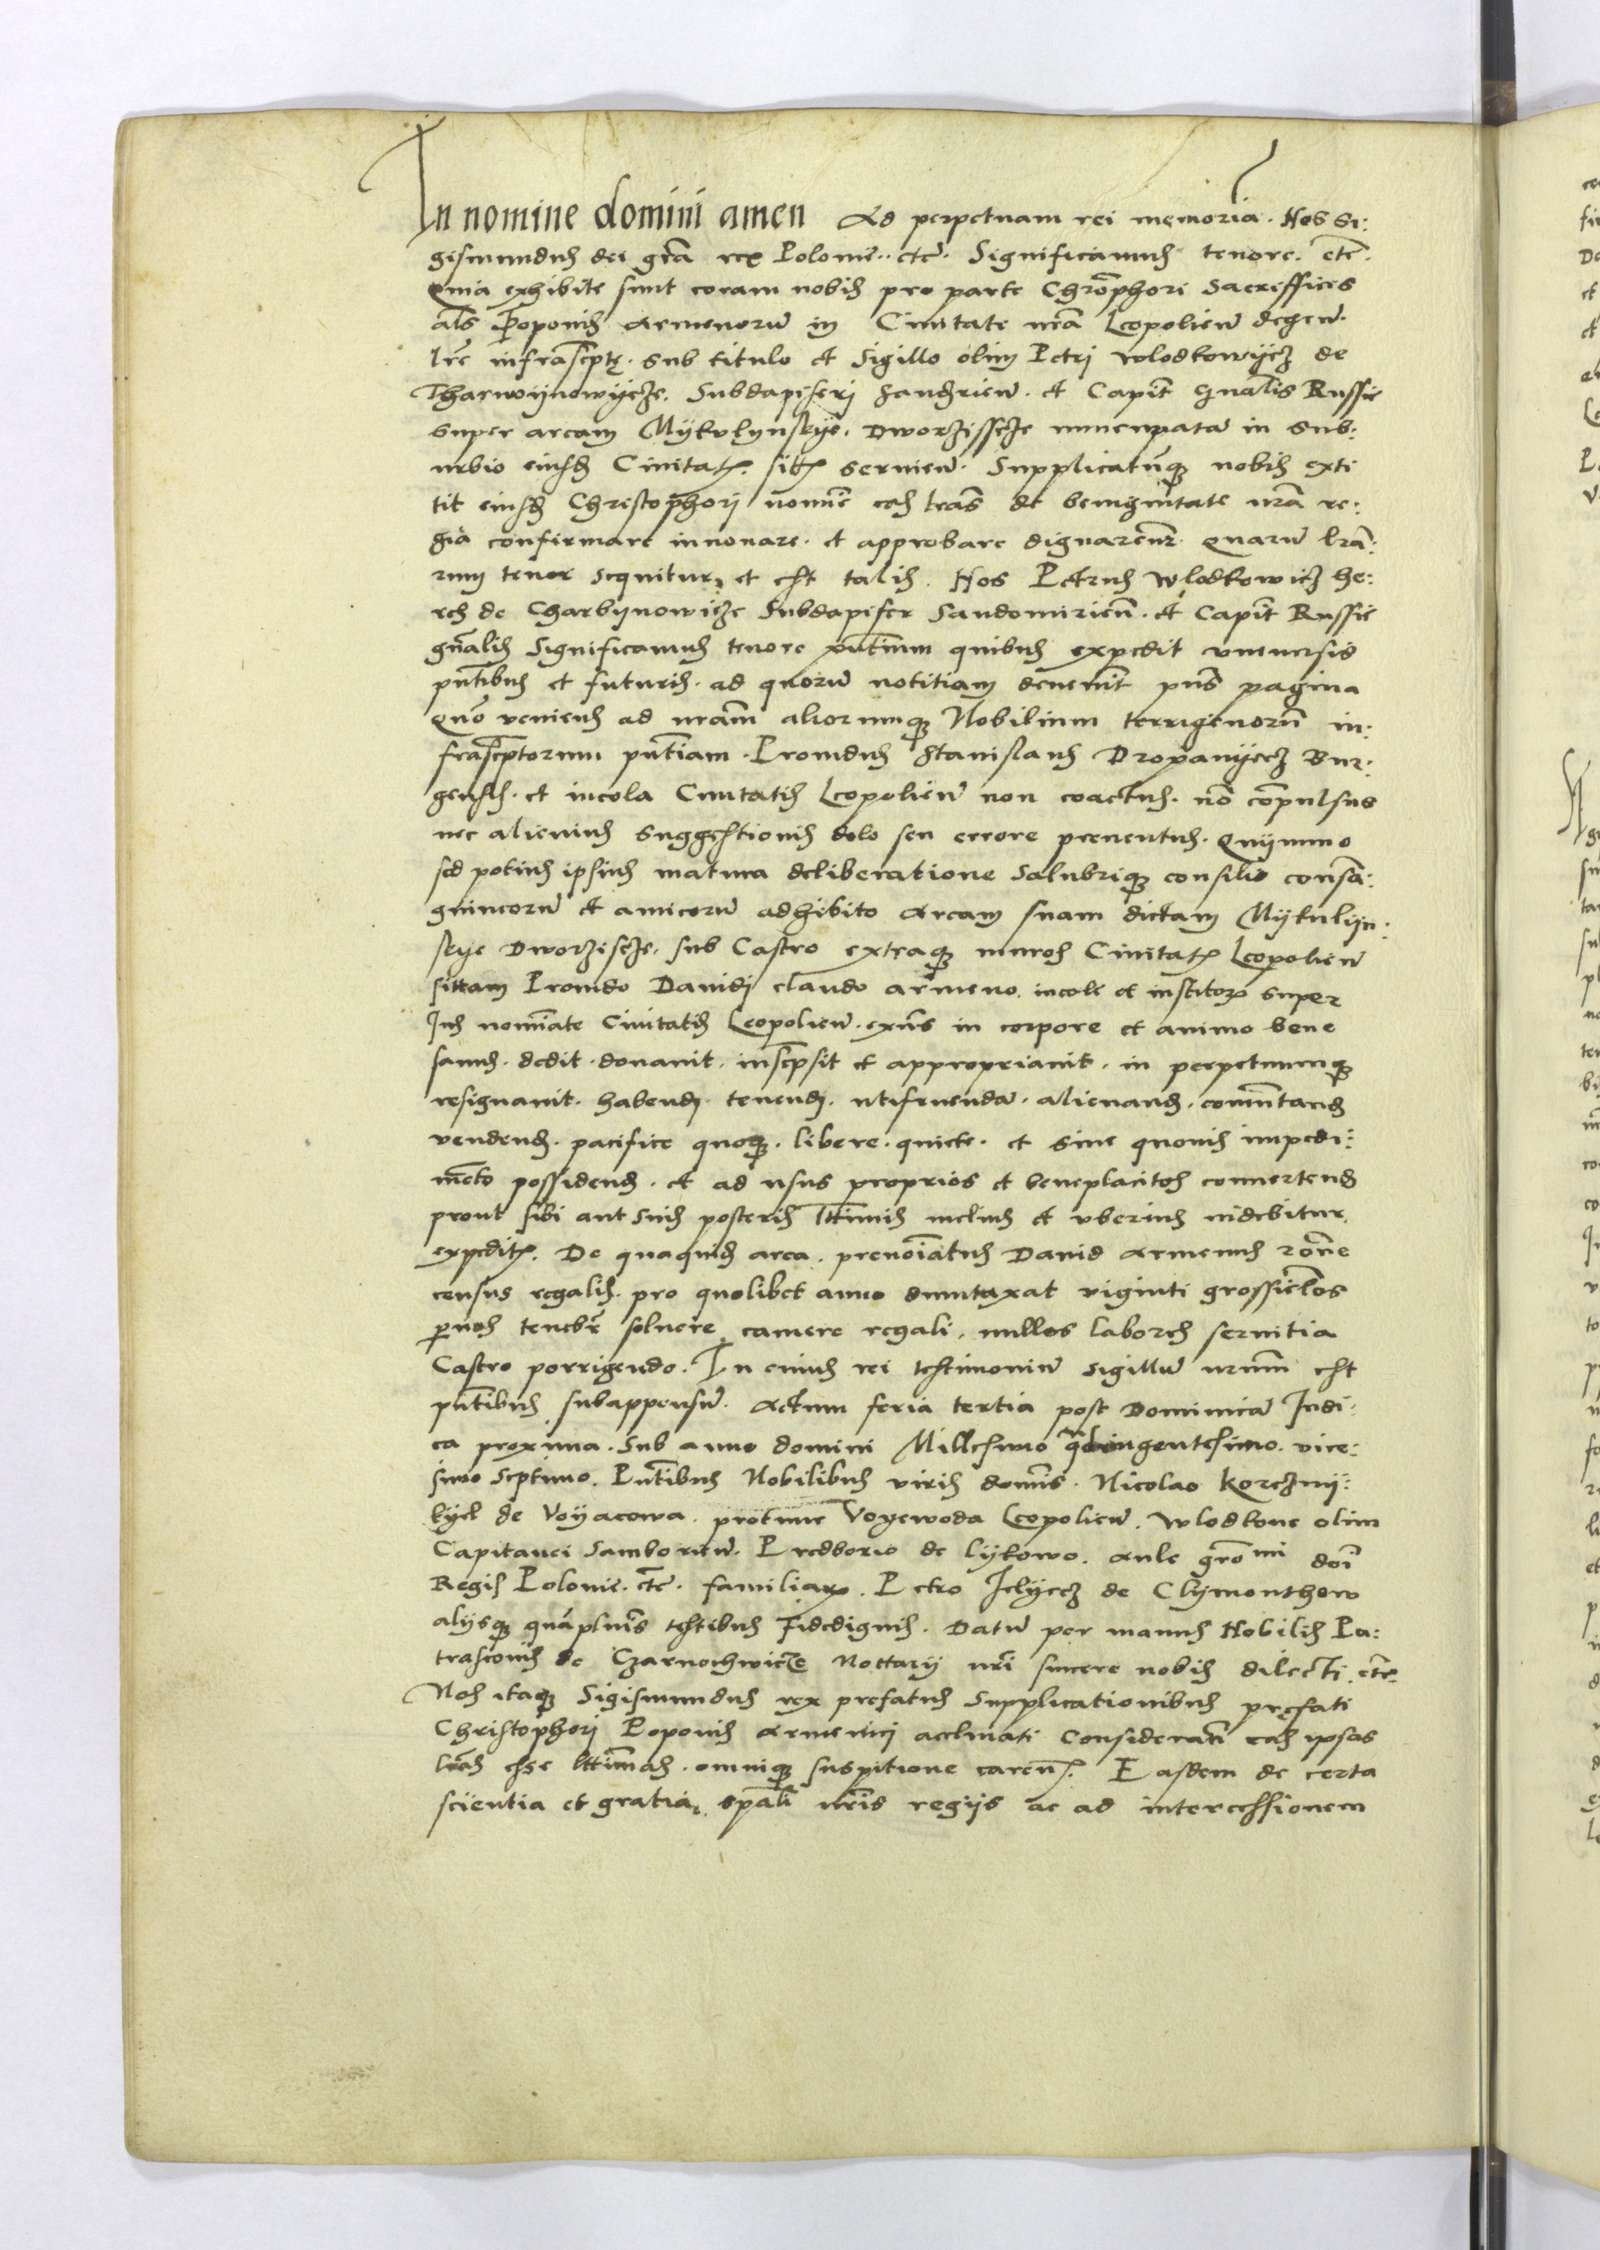 In nomine domini amen Ad perpetuam rei memoriā. Nos Si:
gismundus dei grā rex Polonie.. etc̄. Significamus tenore. etc̄.
Quia exhibite sunt coram nobis pro parte Chrōphori Sacrificis
als Poponis Armenorū in Civitate nrā Leopolien̄ degen̄.
lr̄e infrascptę. sub titulo et Sigillo olim Petri Wlodkowÿcz de
Charwÿnowÿcze. Subdapiferi Sandrien̄. et Capit̄ gnalis Russie
super aream Mÿkulynskÿe. Dworzissze nuncupatā in sub:
urbio eiusd Civitatis. sitis servien̄. Supplicatūq nobis exti
tit eiusd Christophori nomīe eas lr̄as de benignitate nr̄a re:
gia confirmare innovare. et approbare dignaremr̄. Quarū lr̄a:
rum tenor sequitur, et est talis. Nos Petrus Wlodkowicz he:
res de Charbÿnowicze Subdapifer Sandomirien̄. et Capit̄ Russie
gn̄alis Significamus tenore pn̄tium quibus expedit universis
pn̄tibus et futuris. ad quorū notitiam deuenit pn̄s pagina
Quō veniens ad nr̄am aliorumq Nobilium terrigenorū in:
frascptorum pn̄tiam. Prouidus Stanislaus Dropanÿecz Bur:
gensis. et incola Civitatis Leopolien̄ non coactus. nō cōpulsus
nec alicuius suggestionis dolo seu errore preuentus. Quÿnimo
sed potius ipsius matura deliberatione salubriq consilio consā:
guineorū et amicorū adhibito Aream suam dictam Mÿkulÿn:
skÿe Dworziscze. sub Castro extraq muros Civitatis Leopolien̄
sittam Prouido Dauidi claudo armeno. incole et institori super
Jus nomīate Civitatis Leopolien̄. exn̄s in corpore et animo bene
sanus. dedit. donavit. inscpsit et appropriavit. in perpetuumq
resignavit. habend. tenend. utifruendā. alienand. comūtand
vendend. pacifice quoq. libere. quiete. et sine quouis impedi:
mēto possidend. et ad usus proprios et beneplacitos conuertend
prout sibi aut suis posteris lttimis melius et uberius videbitur
expedite. De quaquid area. prenoīatus Dauid Armenus rōne
census regalis. pro quolibet anno dumtaxat viginti grossiclos
paruos tenebr̄ solvere camere regali. nullos labores servitia
Castro porrigendo. In cuius rei testimoniū sigillū nrūm est
pn̄tibus subappensū. Actum feria tertia post Dominicā Judi:
ca proxima. Sub anno domini Millesimo qdringentesimo. vice:
simo Septimo. Pn̄tibus Nobilibus viris domīs. Nicolao Korczmÿ:
kyel de Voÿacowa. protunc Voyewoda Leopolien̄. Wlodkone olim
Capitanei Samborien̄. Predborio de Lÿkowo. aule gr̄o mi doī
Regis Polonie. etc̄. familiaro. Petro Jelÿecz de Clÿmonthow
alÿsq quāplurīs testibus Fidedignis. Datū per manus Nobilis Pa:
trasionis de Czarnochwicze Nottarÿ nr̄i sincere nobis dilecti. etc̄
Nos itaq Sigismundus rex prefatus Supplicationibus pręfati
Christophori Poponis Armenici acclinati Considerātī eas ipsas
lr̄as esse lttīmas. omniq suspitione caren̄t. Easdem de certa
scientia et gratia. spāli nr̄is regÿs ac ad intercessionem